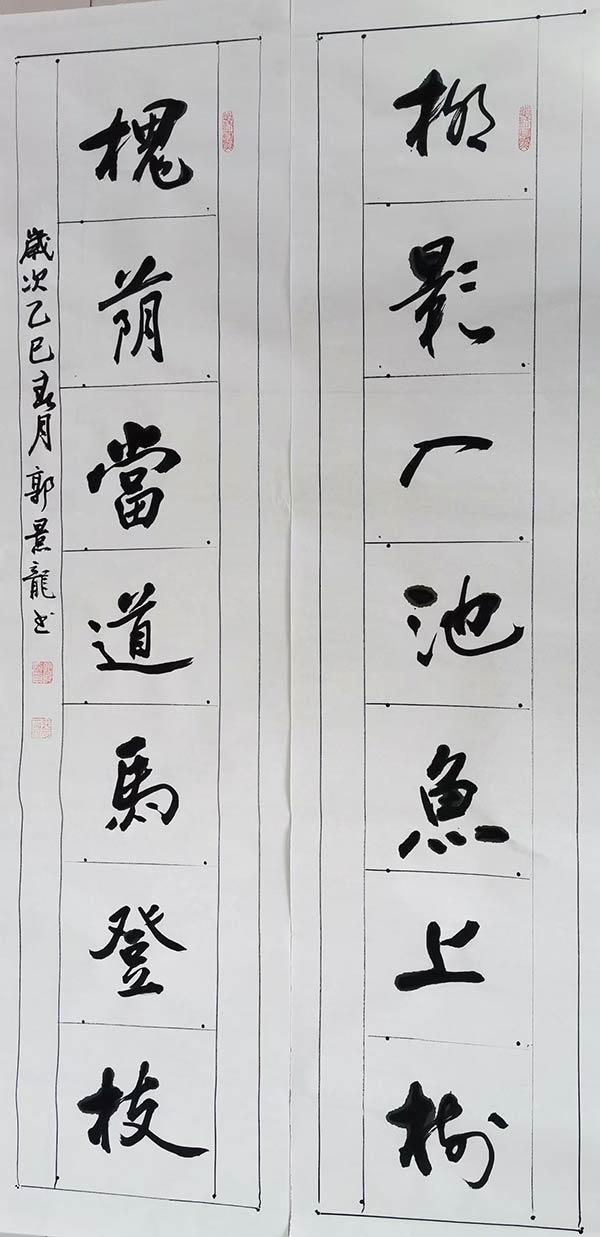 柳影入池魚上樹
槐荫當道馬登枝
歲次乙巳春月郭景龍书